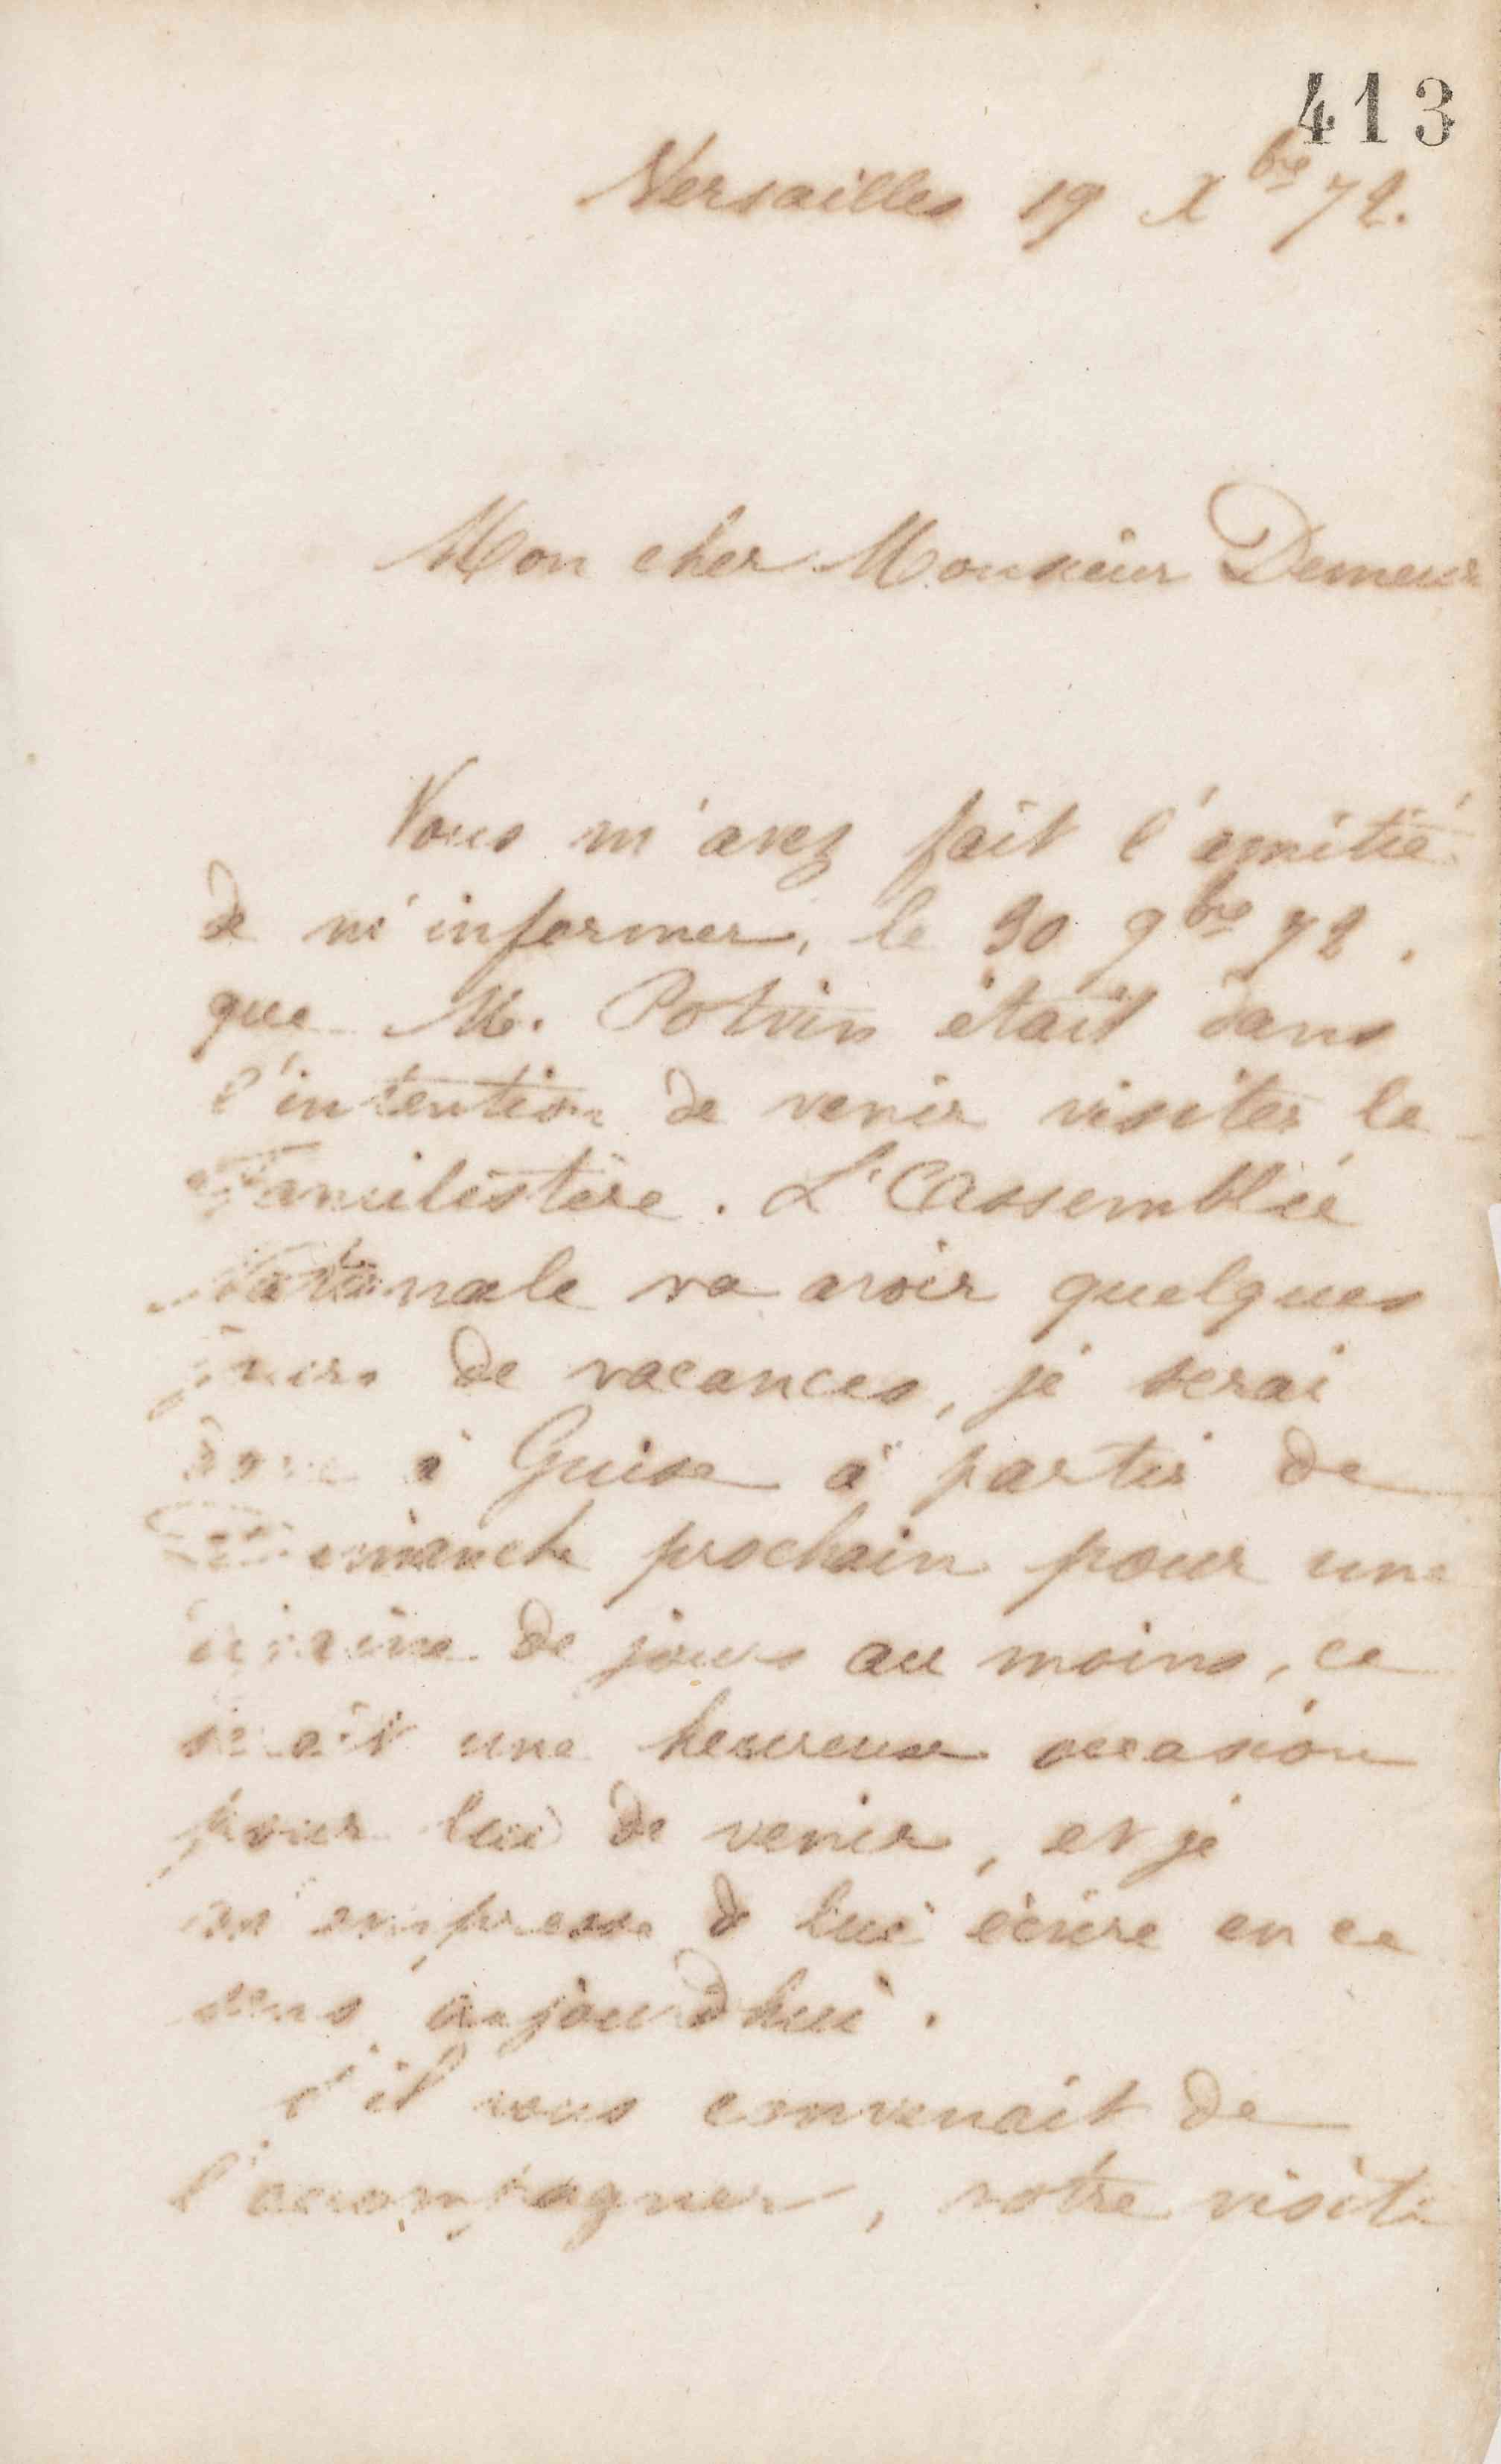 413
Versailles 19 Xbre 72.
Mon cher Monsieur Demeur
Vous m'avez fait l'amitié
de m'informer, le 30 9bre 72.
que M. Potvin était dans
l'intention de venir visiter le
Familistère. L'Assemblée
Nationale va avoir quelques
jours de vacances, je serai
donc à Guise à partir de
Dimanche prochain pour une
de jours au moins, ce
serait une heureuse occasion
pour lui de venir, et je
m'empresse de lui écrire en ce
sens aujourd'hui.
S'il vous convenait de
l'accompagner, votre visite